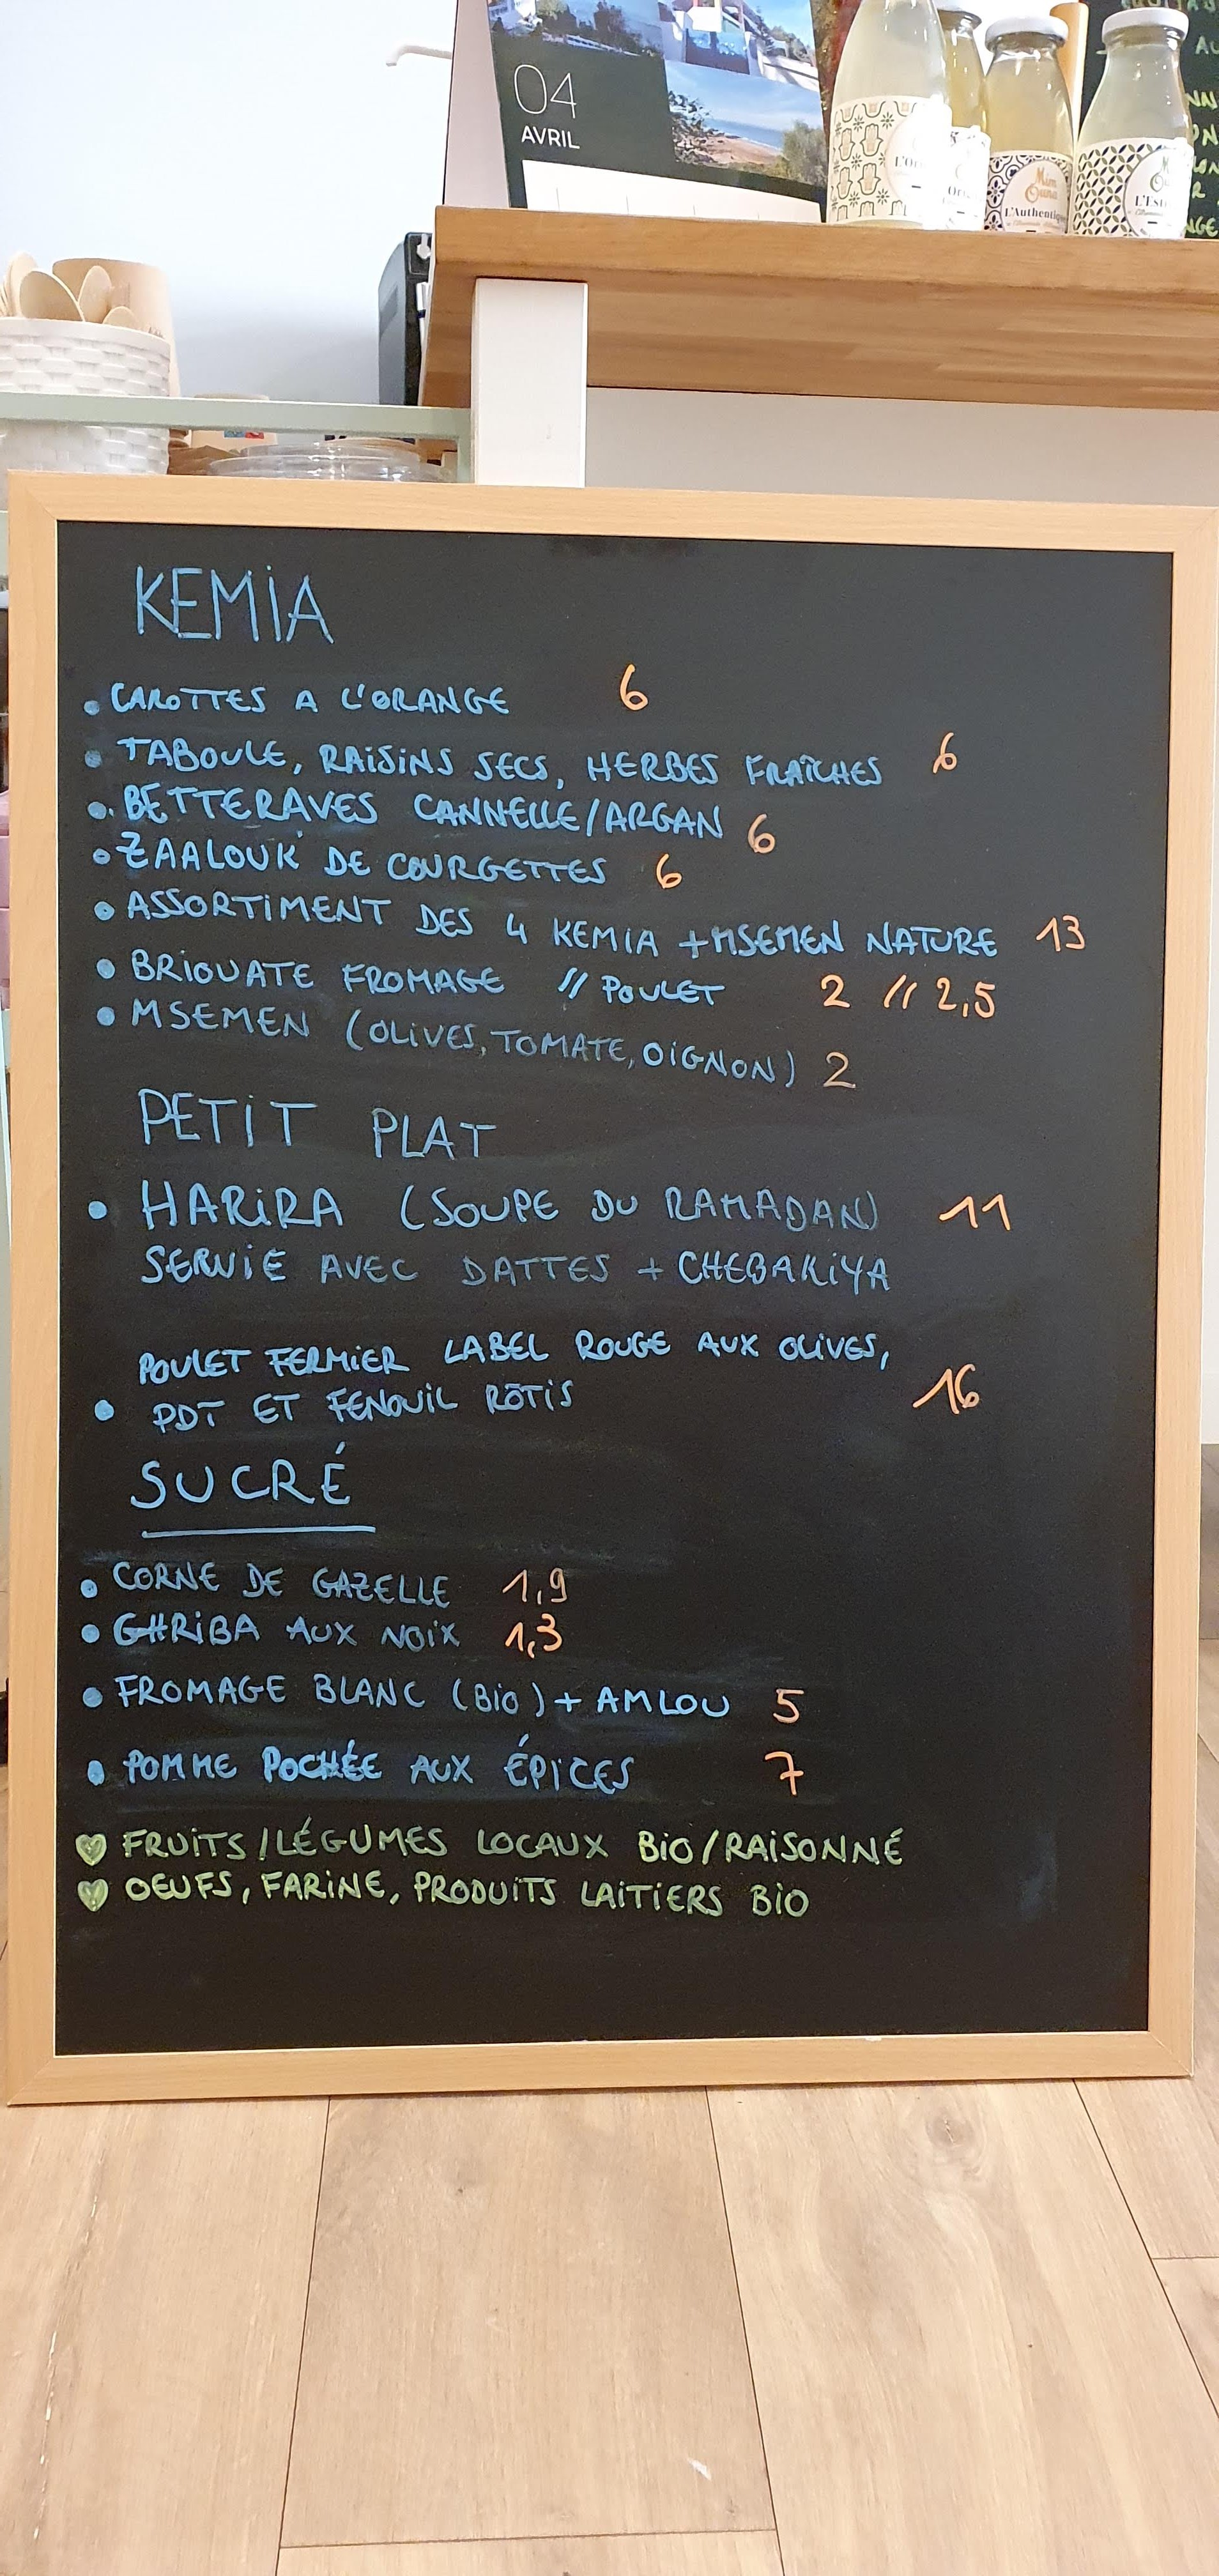 04
AVRIL
L'Authentique
KEMIA
• CAROTTES A L'ORANGE 6
• TABOULE, RAISINS SECS, HERBES FRAÎCHES 6
• BETTERAVES CANNELLE/ARGAN 6
• ZAALOUK DE COURGETTES 6
• ASSORTIMENT DES 4 KEMIA + MSEMEN NATURE 13
• BRIOUATE FROMAGE // POULET 2 // 2,5
• MSEMEN (OLIVES, TOMATE, OIGNON) 2
PETIT PLAT
• HARIRA (SOUPE DU RAMADAN) 11
SERVIE AVEC DATTES + CHEBAKIYA
POULET FERMIER LABEL ROUGE AUX OLIVES,
• PDT ET FENOUIL RÔTIS 16
SUCRÉ
• CORNE DE GAZELLE 1,9
• GHRIBA AUX NOIX 1,3
• FROMAGE BLANC (BIO) + AMLOU 5
• POMME POCHÉE AUX ÉPICES 7
♥ FRUITS/LÉGUMES LOCAUX BIO/RAISONNÉ
♥ OEUFS, FARINE, PRODUITS LAITIERS BIO